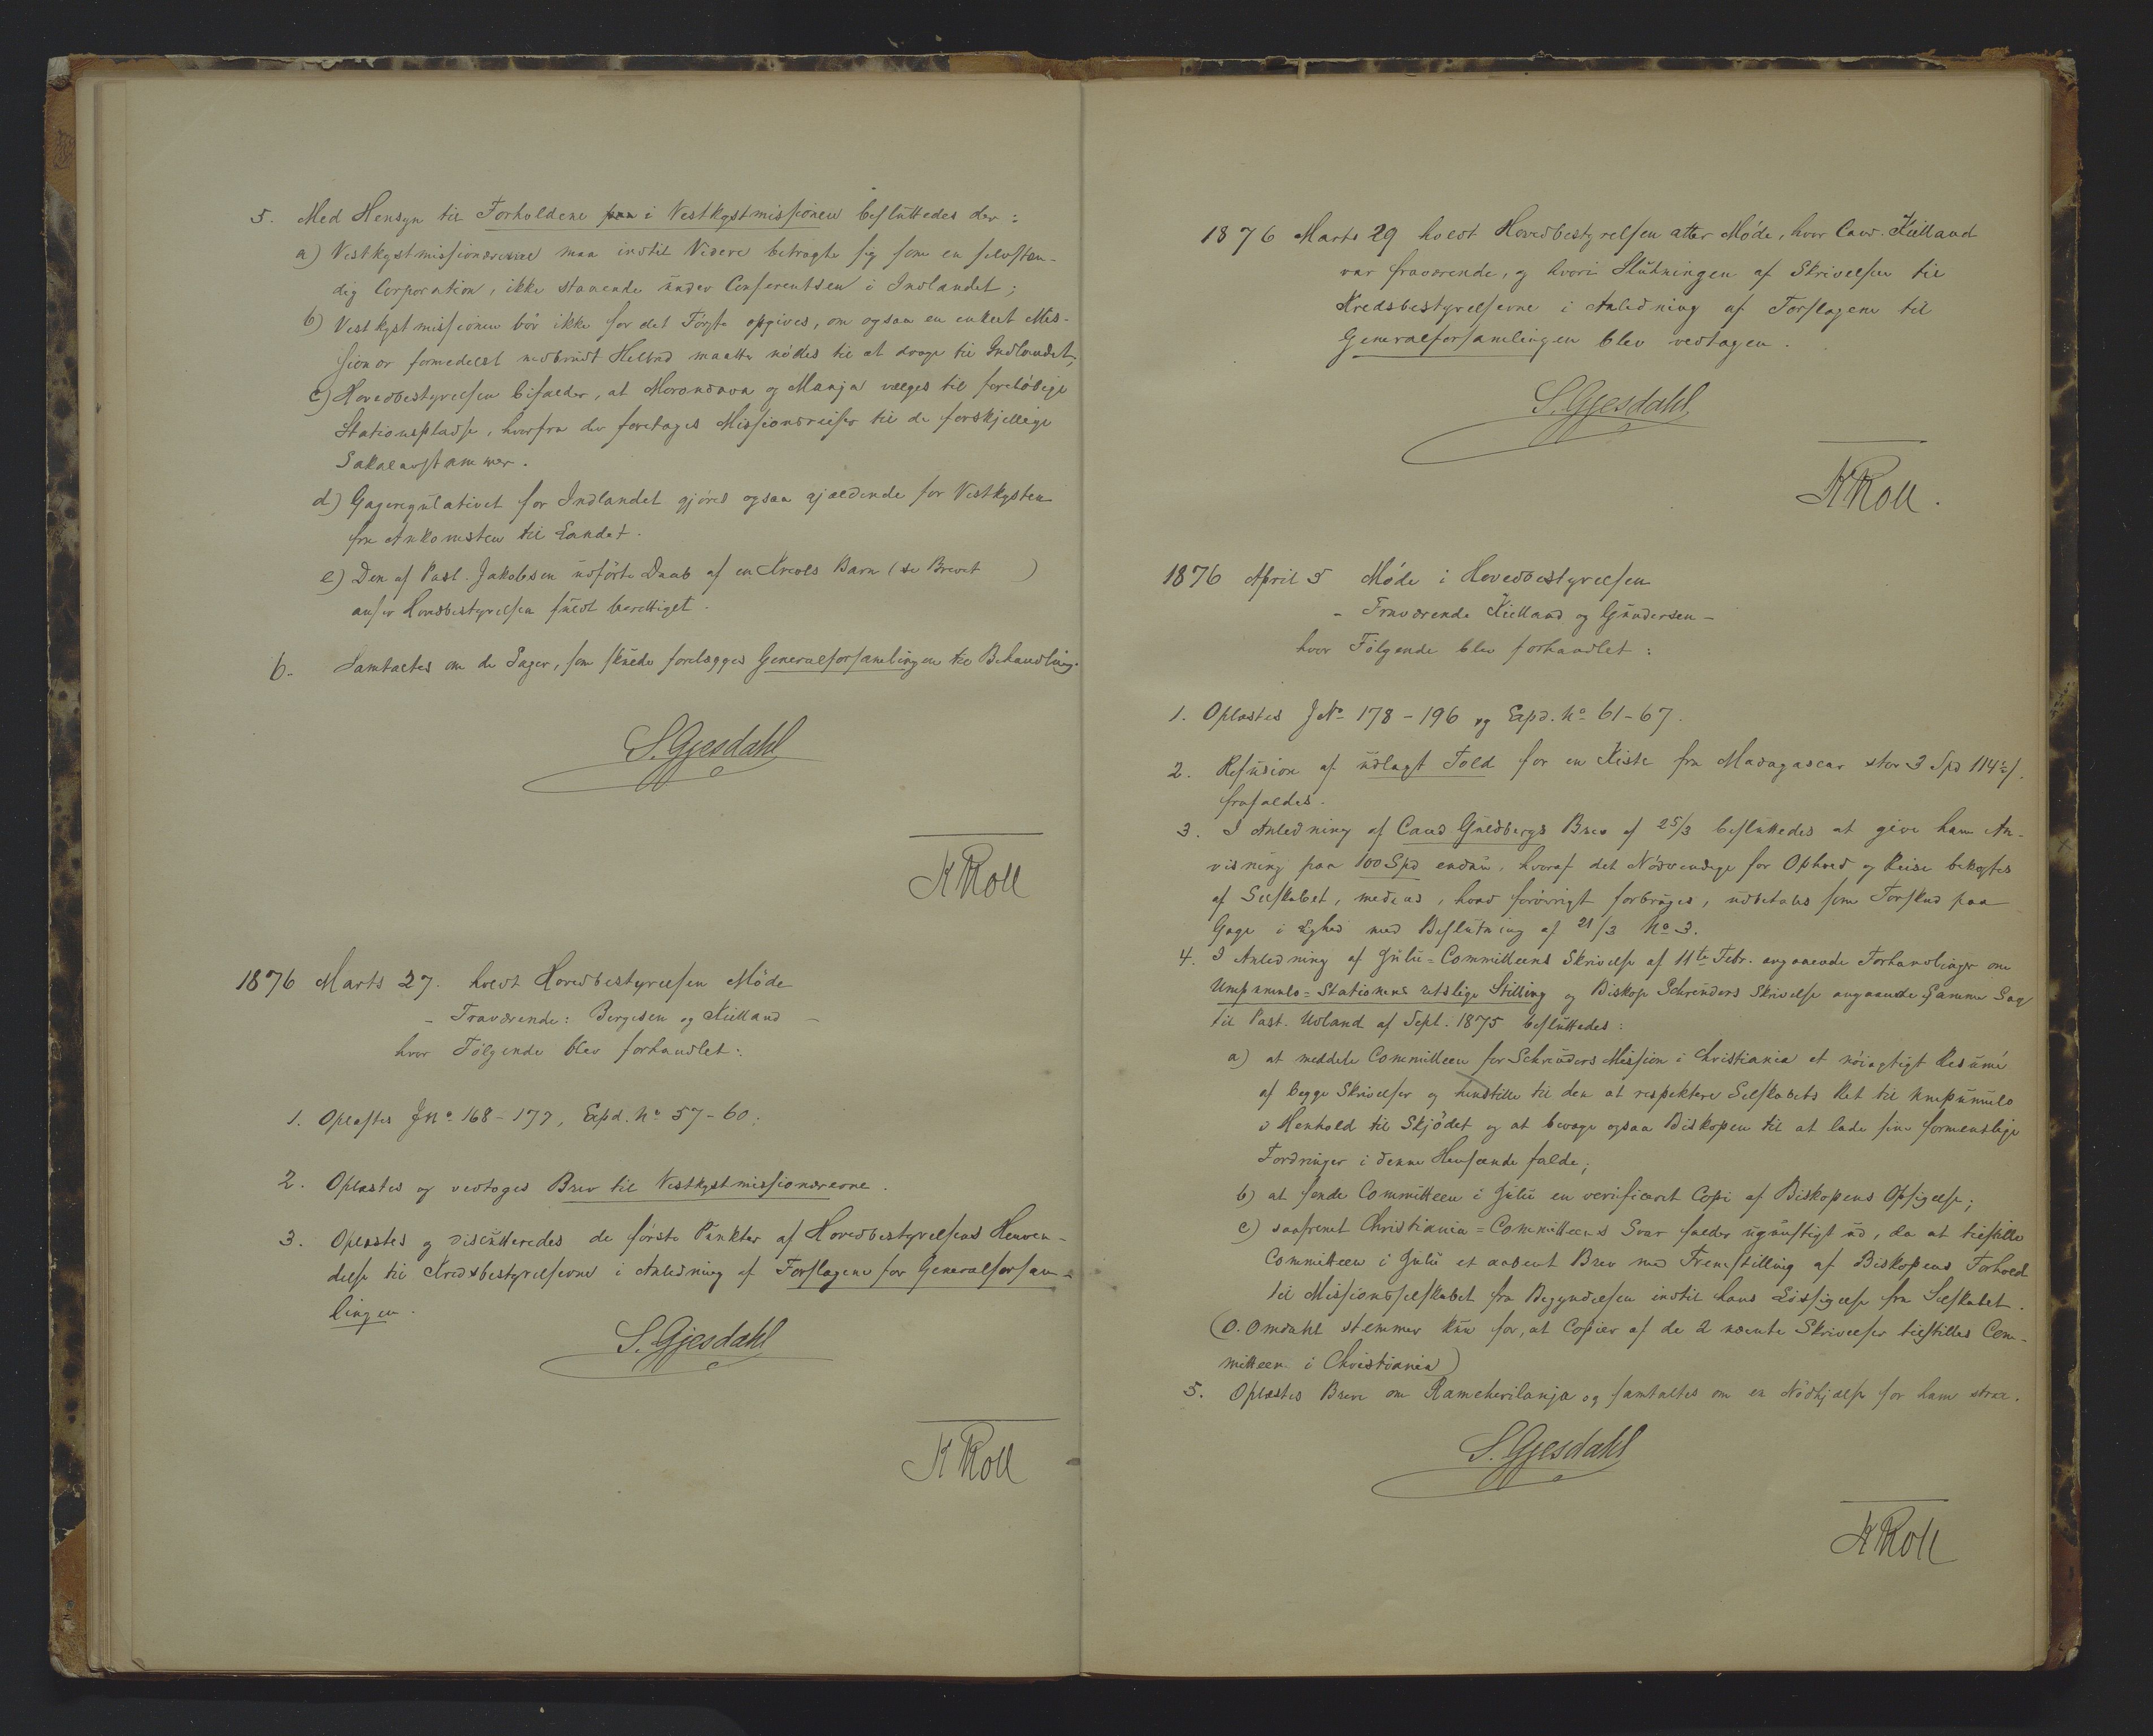 5. Med Hensyn til Forholdene paa i Vestkystmissionen besluttedes der:
a) Vestkystmissionærerne maa indtil Videre betragte sig som en selvstæn-
dig Corporation, ikke staaende under Conferentsen i Indlandet;
b) Vestkystmissionen bör ikke for det Förste opgives, om ogsaa en enkelt Mis-
sionær formedelst nedbrudt Helbred maatte nödes til at drage til Indlandet;
c) Hovedbestyrelsen bifalder, at Morondava og Manja vælges til forelöbige
Stationspladse, hvorfra der foretages Missionsreiser til de forskjellige
Sakalavstammer.
d) Gageregulativet for Indlandet gjöres ogsaa gjældende for Vestkysten
fra Ankomsten til Landet.
e) Den af Past. Jakobsen udförte Daab af en Kreols Barn (se Brevet )
anser Hovedbestyrelsen fuldt berettiget.
6. Samtaltes om de Sager, som skulde forelægges Generalforsamlingen til Behandling.
S. Gjesdahl
K Roll
1876 Marts 27. holdt Hovedbestyrelsen Möde
- Fraværende: Borgesen og Kielland -
hvor Fölgende blev forhandlet:
1. Oplæstes J No 168-177, Expd. No 57-60.
2. Oplæstes og vedtoges Brev til Vestkystmissionærerne.
3. Oplæstes og discutteredes de förste Punkter af Hovedbestyrelsens Henven-
delse til Kredsbestyrelserne i Anledning af Forslagene for Generalforsam-
lingen.
S. Gjesdahl
K Roll
1876 Marts 29 holdt Hovedbestyrelsen atter Möde, hvor Cand. Kielland
var fraværende, og hvori Slutningen af Skrivelsen til
Kredsbestyrelserne i Anledning af Forslagene til
Generalforsamlingen blev vedtagen.
S. Gjesdahl
K Roll.
1876 April 5 Möde i Hovedbestyrelsen
- Fraværende Kielland og Gundersen -
hvor Fölgende blev forhandlet:
1. Oplæstes J No 178-196 og Expd. No 61-67.
2. Refusion af udlagt Told for en Kiste fra Madagascar stor 3 Spd 114
frafaldes.
3. I Anledning af Cand Guldbergs Brev af 25/3 besluttedes at give ham An-
visning paa 100 Spd endnu, hvoraf det Nödvendige for Ophold og Reise bekostes
af Selskabet, medens, hvad forövrigt forbruges, udbetales som Forskud paa
Gage i Lighed med Beslutning af 21/3 No 3.
4. I Anledning af Zulu=Committeens Skrivelse af 11te Febr. angaaende Forhandlinger om
Umpumulo=Stationens retslige Stilling og Biskop Schreuders Skrivelse angaaende samme Sag
til Past. Udland af Sept. 1875 besluttedes:
a) at meddele Committeen for Schreuders Mission i Christiania et nöiagtigt Resumé
af begge Skrivelser og henstille til den at respektere Selskabets Ret til Umpumulo
i Henhold til Skjödet og at bevæge ogsaa Biskopen til at lade sine formentlige
Fordringer i denne Henseende falde;
b) at sende Committeen i Zulu en verificeret Copi af Biskopens Opsigelse;
c) saafremt Christiania=Committeens Svar falder ugunstigt ud, da at tilstille
Committeen i Zulu et aabent Brev med Fremstilling af Biskopens Forhold
til Missionsselskabet fra Begyndelsen indtil hans Lössigelse fra Selskabet.
(O. Omdahl stemmer kun for, at Copier af de 2 nævnte Skrivelser tilstilles Com-
mitteen i Christiania)
5. Oplæstes Breve om Rameherilanja og samtaltes om en Nödhjælp for ham strax.
S. Gjesdahl
K Roll